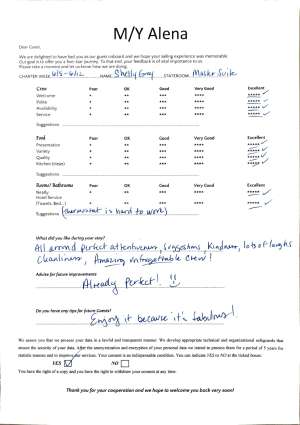 M/Y Alena
Dear Guest,
We are delighted to have had you as our guest onboard and we hope your sailing experience was memorable.
Our goal is to offer you a five-star journey. To that end, your feedback is of vital importance to us.
Please take a moment and let us know how we are doing.
CHARTER WEEK 6/5-6/12 NAME Shelly Gray STATEROOM Master Suite
Crew Poor OK Good Very Good Excellent
Welcome * ** *** **** *****
Polite * ** *** **** *****
Availability * ** *** **** *****
Service * ** *** **** *****
Suggestions
Food Poor OK Good Very Good Excellent
Presentation * ** *** **** *****
Variety * ** *** **** *****
Quality * ** *** **** *****
Kitchen (Meals) * ** *** **** *****
Suggestions
Rooms/ Bathrooms Poor OK Good Very Good Excellent
Ready * ** *** **** *****
Hotel Service
(Towels, Bed...) * ** *** **** *****
Suggestions (thermostat is hard to work)
What did you like during your stay?
All around perfect attentiveness, suggestions, kindness, lots of laughs
Cleanliness, Amazing unforgettable crew!
Advise for future improvements:
Already Perfect!
Do you have any tips for future Guests?
Enjoy it because it's fabulous!
We assure you that we process your data in a lawful and transparent manner. We develop appropriate technical and organizational safeguards that
ensure the security of your data. After the anonymization and encryption of your personal data we intend to process them for a period of 5 years for
statistic reasons and to improve our services. Your consent is an indispensable condition. You can indicate YES or NO in the ticked boxes:
YES NO
You have the right of a copy and you have the right to withdraw your consent at any time.
Thank you for your cooperation and we hope to welcome you back very soon!